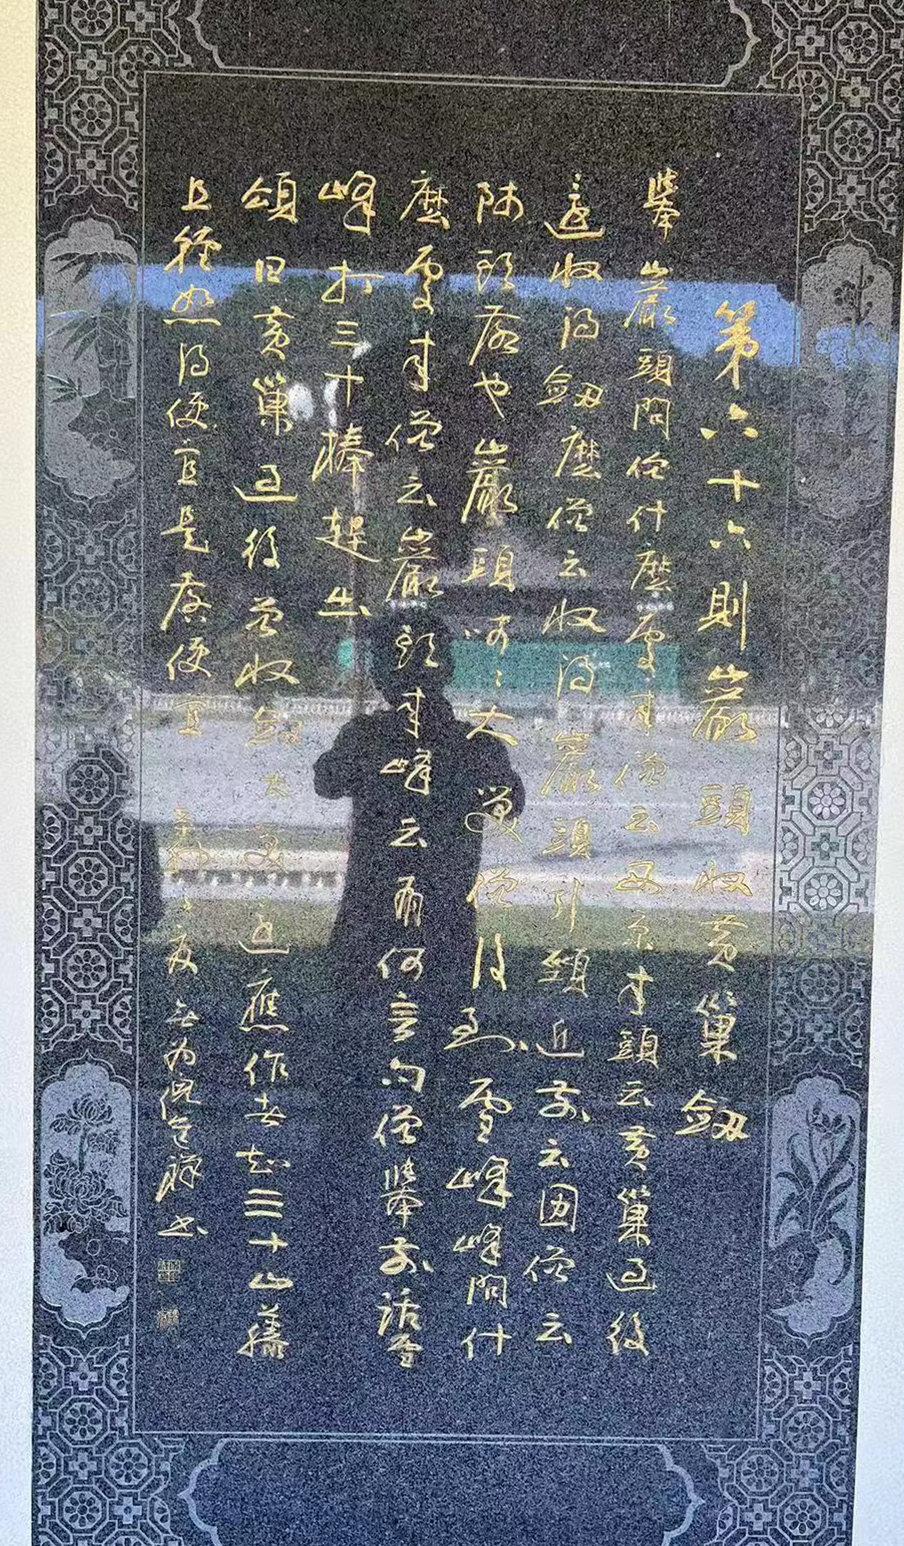 第六十六則巖頭收黃巢劒
舉巖頭問僧什麼處來僧云西京來頭云黃巢過後
還收得劒麼僧云收得巖頭引頸近前云㘞僧云
師頭落也巖頭呵〻大笑僧後到雪峰峰問什
麼處來僧云巖頭來峰云有何言句僧舉前話雪
峰打三十棒趕出
頌曰黃巢過後曾收劒大笑還應作者知三十山藤
且輕恕得便宜是落便宜 辛卯之夏無為倪祥书